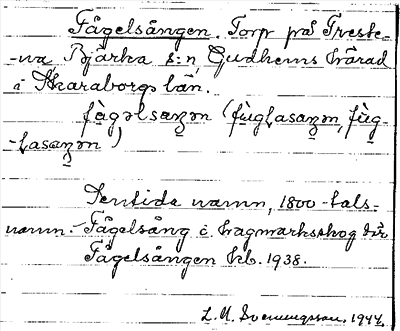 Fågelsången. Torp på Treste-
-na Bjärka s:n, Gudhems härad
i Skaraborgs län.
fågəlsaŋən (fùgɫasaŋən, fùg-
-ɫasaŋən)
Sentida namn, 1800-tals-
namn.- Fågelsång i hagmarksskog där
Fågelsången kb. 1938.
L. M. Svenungsson. 1944.